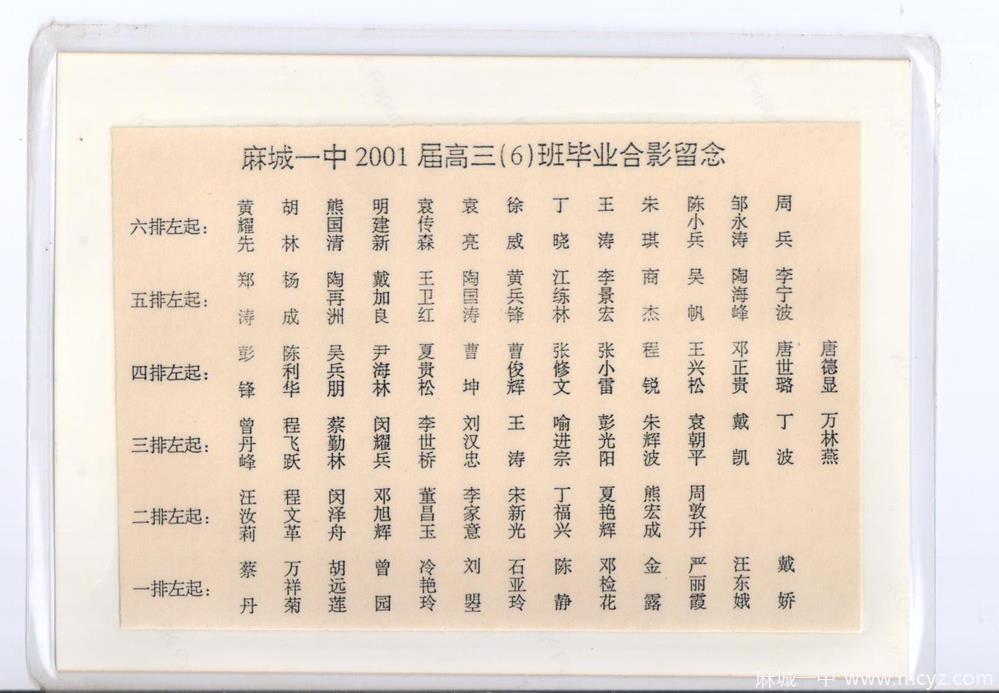 麻城一中 2001 届高三(6)班毕业合影留念
六排左起: 黄耀先 胡林 熊国清 明建新 袁传森 袁亮 徐威 丁晓 王涛 朱琪 陈小兵 邹永涛 周兵
五排左起: 郑涛 杨成 陶再洲 戴加良 王卫红 陶国涛 黄兵锋 江练林 李景宏 商杰 吴帆 陶海峰 李宁波
四排左起: 彭锋 陈利华 吴兵朋 尹海林 夏贵松 曹坤 曹俊辉 张修文 张小雷 程锐 王兴松 邓正贵 唐世璐 唐德显
三排左起: 曾丹峰 程飞跃 蔡勤林 闵耀兵 李世桥 刘汉忠 王涛 喻进宗 彭光阳 朱辉波 袁朝平 戴凯 丁波 万林燕
二排左起: 汪汝莉 程文革 闵泽舟 邓旭辉 董昌玉 李家意 宋新光 丁福兴 夏艳辉 熊宏成 周敦开
一排左起: 蔡丹 万祥菊 胡远莲 曾园 冷艳玲 刘曌 石亚玲 陈静 邓检花 金露 严丽霞 汪东娥 戴娇
麻城一中 www.mcyz.com